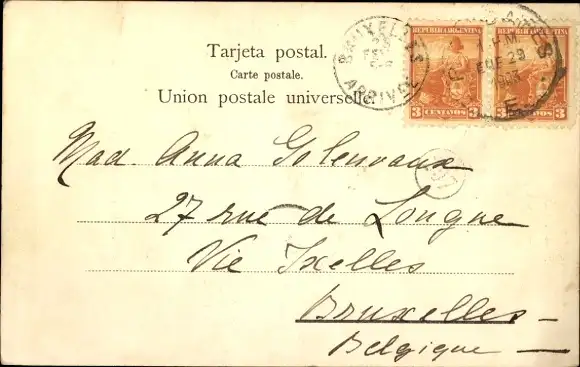 Tarjeta postal.
Carte postale.
Union postale universelle.
BRUXELLES
ARRIVÉE
REPUBLICA ARGENTINA
REPUBLICA ARGENTINA
1 P.M.
ENE 29
3 CENTAVOS 3
3 CENTAVOS 3
Mad. Anna Golenvaux
27 rue de Longue
Vie Ixelles
Bruxelles
Belgique